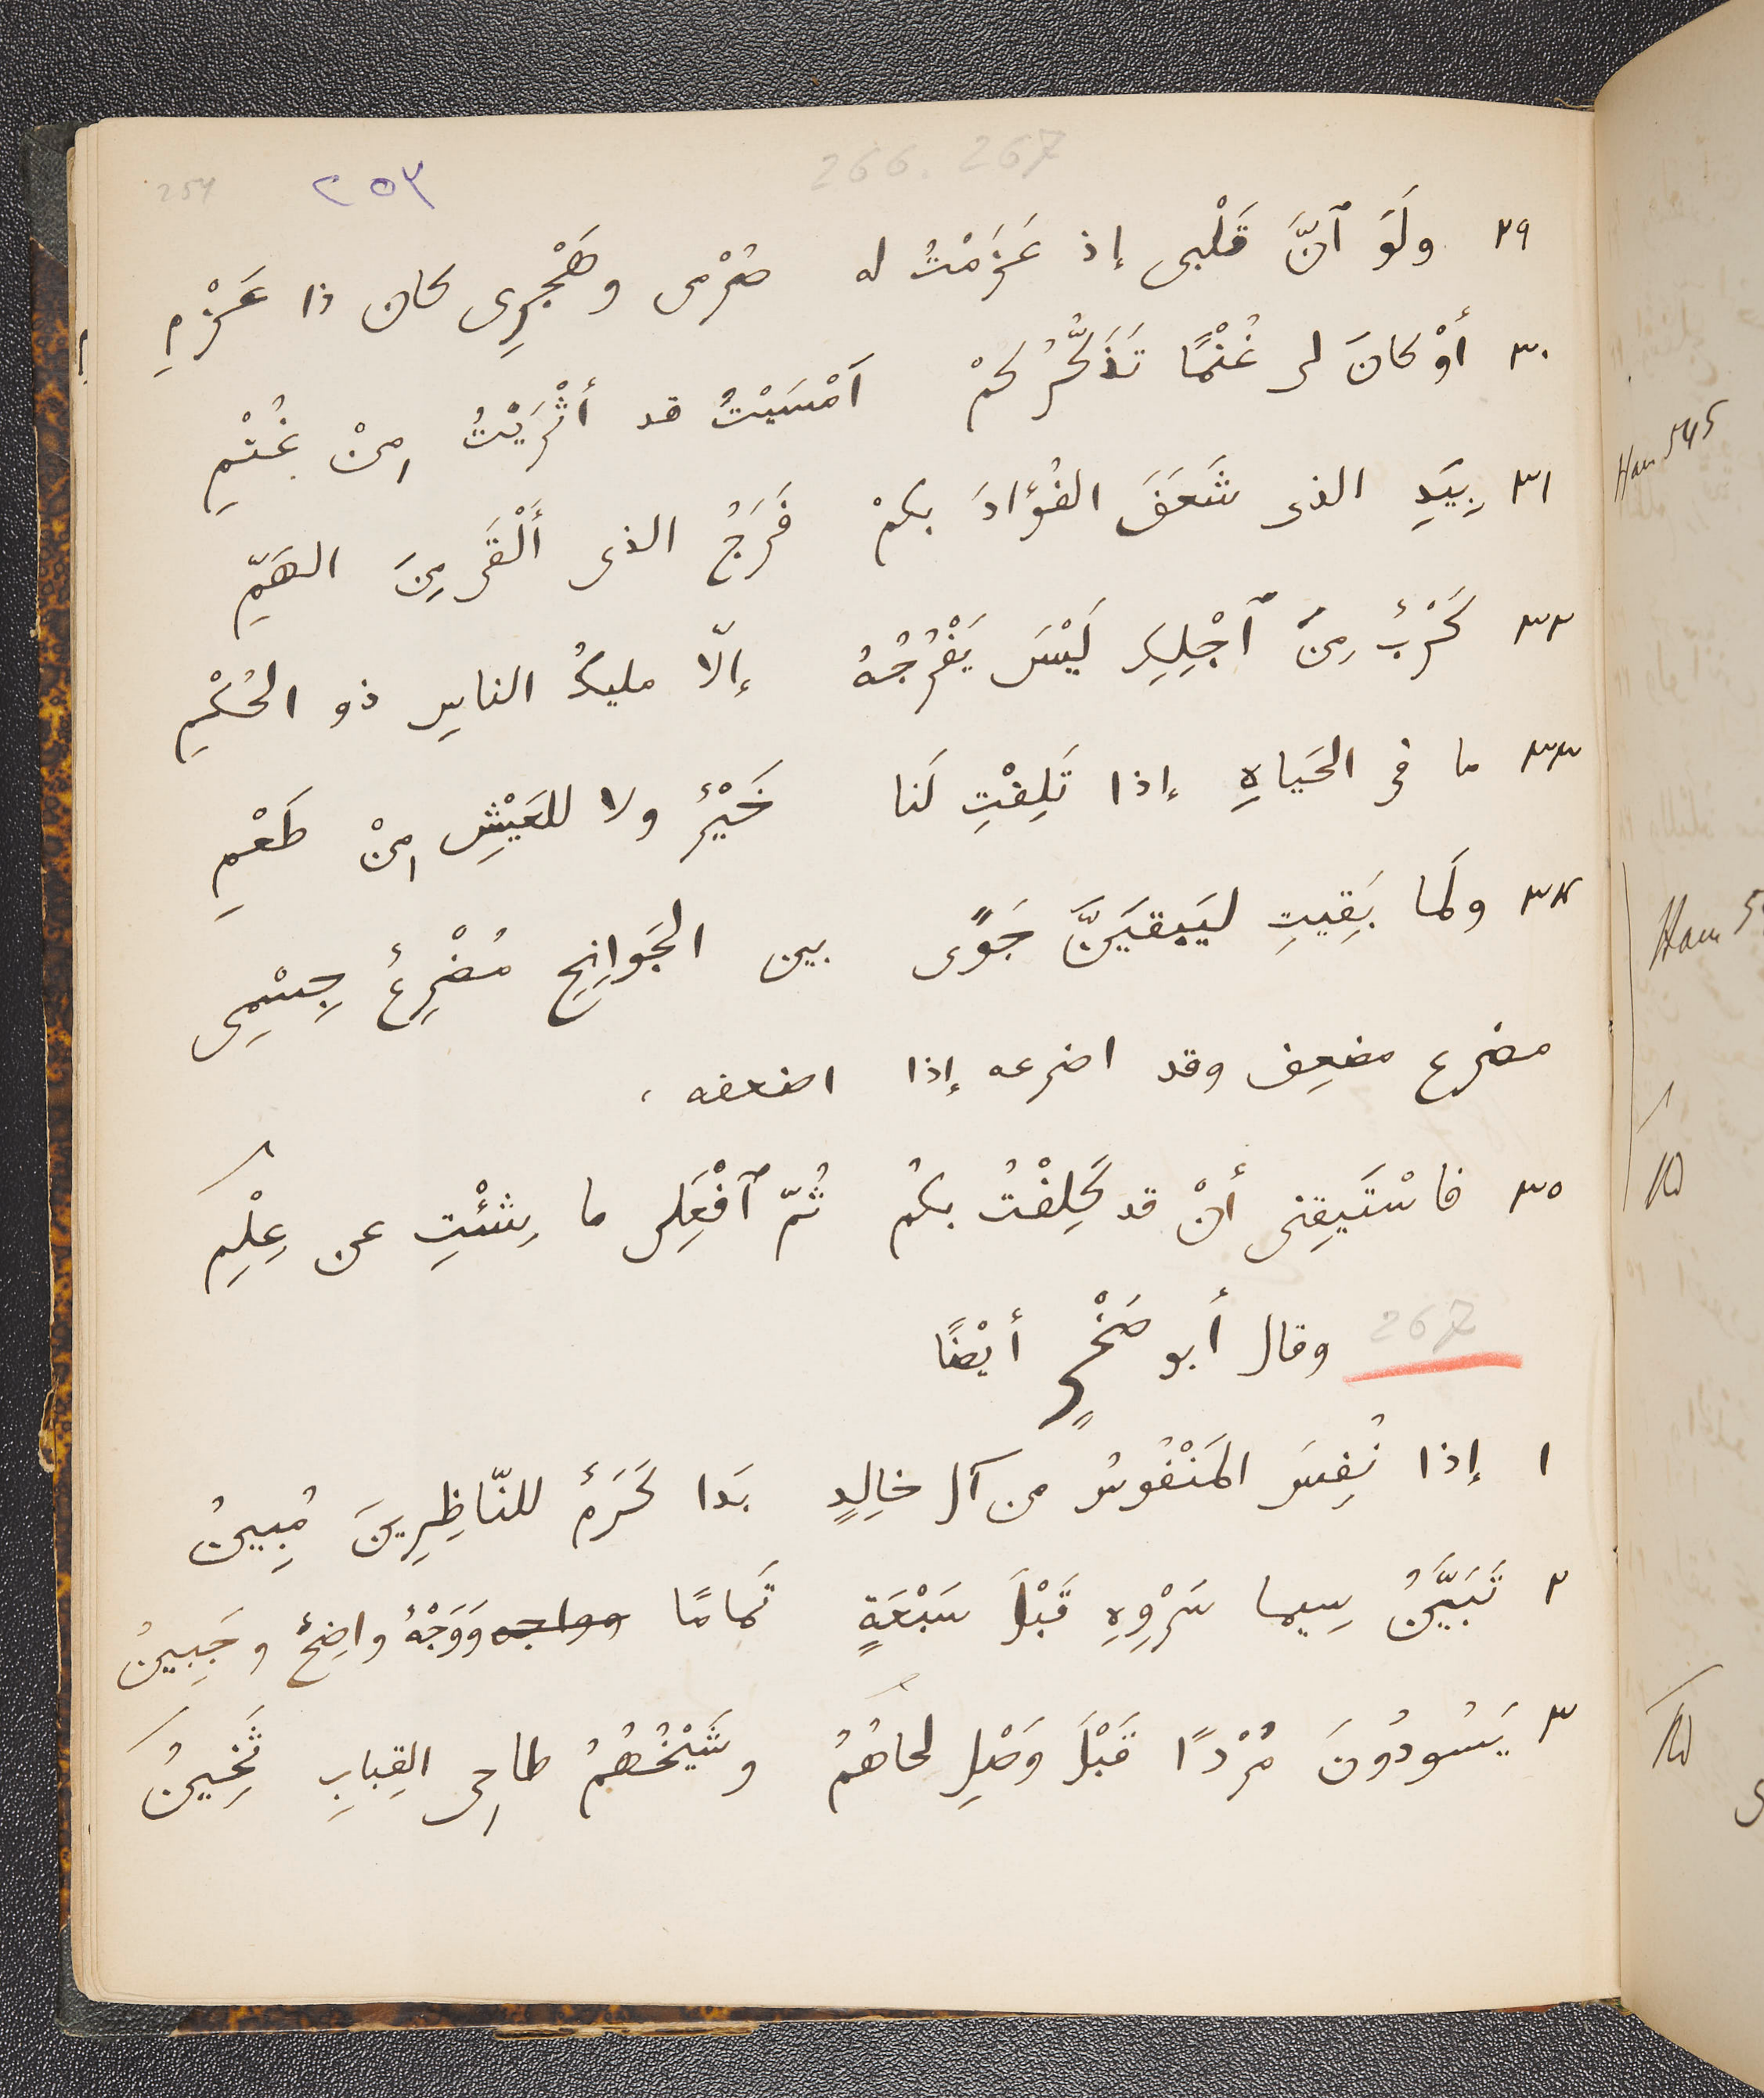 266. 267
254 ٢٥٣
٢٩ ولَوَ ٱنَّ قَلْبى إذ عَزَمْتُ له صُرْمى وهَجْرِى كان ذا عَزْمِ
٣٠ أوْ كانَ لى غُنْمًا تَذَكُّرُكُمْ اَمْسَيْتُ قد أثْرَيْتُ مِنْ غُنْمِ
٣١ بِيَدِ الذى شَعَفَ الفُؤادَ بكمْ فَرَجُ الذى أَلْقَى مِنَ الهَمِّ
٣٢ كَرْبٌ مِنَ ٱجْلِكِ لَيْسَ يَفْرُجُهُ إلّا مليكُ الناسِ ذو الحُكْمِ
٣٣ ما فى الحَياهِ إذا تَلِفْتِ لَنا خَيْرٌ ولا للعَيْشِ مِنْ طَعْمِ
٣٤ ولَمَا بَقِيتِ ليَبقيَنَّ جَوًى بين الجَوانِحِ مُضْرِعٌ جِسْمِى
مضرع مضعِف وقد اضرعه إذا اضعفه ،
٣٥ فاسْتَيقِنى أنْ قد كَلِفْتُ بكُم ثُمّ ٱفْعَلِى ما شِئْتِ عن عِلْمِ
267 وقال أبو صَخْرٍ أيْضًا
١ إذا نُفِسَ المَنْفُوسُ من آل خالِدٍ بَدا كَرَمٌ للنّاظِرِينَ مُبِينُ
٢ تَبَيَّنُ سِيما سَرْوِهِ قَبْلَ سَبْعَةٍ تَمامًا وواجه وَوَجْهٌ واضِحٌ وجَبِينُ
٣ يَسُودُونَ مُرْدًا قَبْلَ وَصْلِ لحاهُمُ وشَيْخُهُمُ طاحِى القِبابِ ثَخِينُ
Ham 545
Ham 5